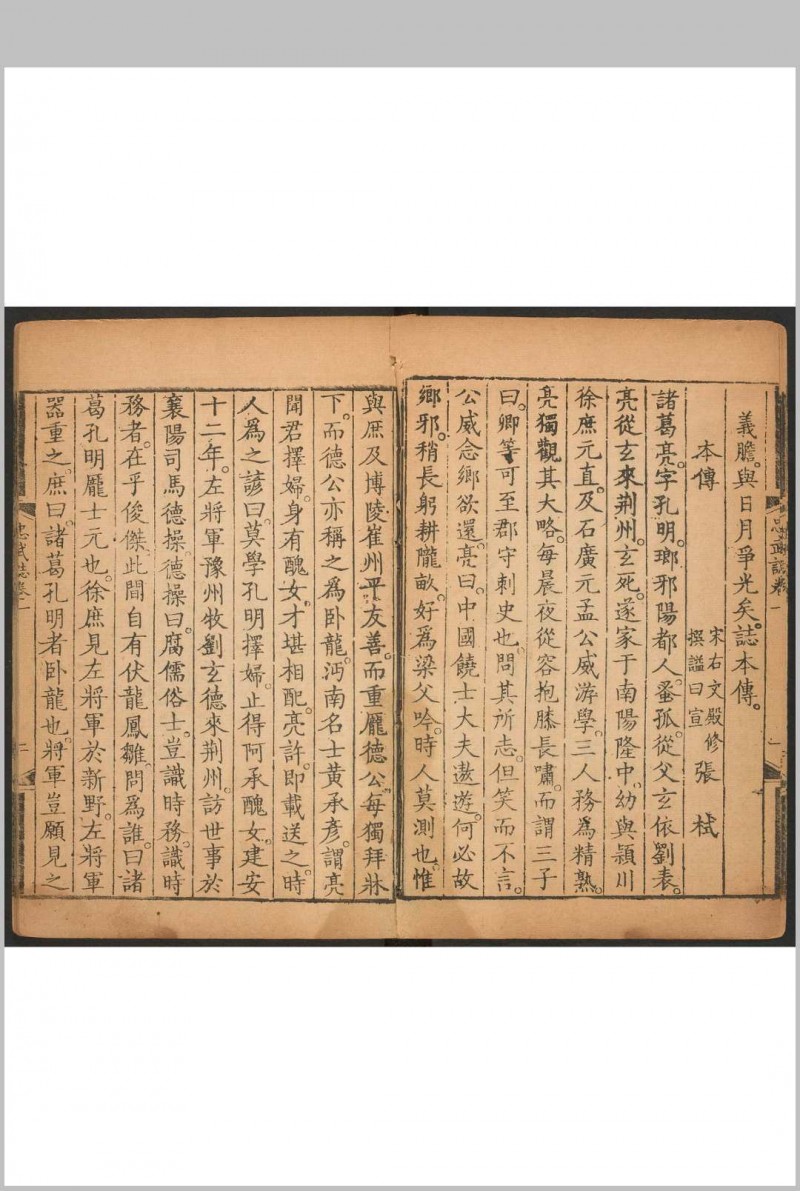 忠武誌卷一
一
義膽。與日月爭光矣。誌本傳。
本傳
宋右文殿修
撰謚曰宣
張栻
諸葛亮。字孔明。瑯邪陽都人。蚤孤。從父玄依劉表。
亮從玄來荆州。玄死。遂家于南陽隆中。幼與潁川
徐庶元直。及石廣元孟公威游學。三人務為精熟。
亮獨觀其大略。每晨夜從容抱膝長嘯。而謂三子
曰。卿等可至郡守刺史也。問其所志。但笑而不言。
公威念鄉欲還。亮曰。中國饒士大夫。遨遊。何必故
鄉邪。稍長。躬耕隴畝。好為梁父吟。時人莫測也。惟
與庶及博陵崔州平友善。而重龐德公。每獨拜牀
下。而德公亦稱之為卧龍。沔南名士黃承彥。謂亮
聞君擇婦。身有醜女。才堪相配。亮許。即載送之。時
人為之諺曰。莫學孔明擇婦。止得阿承醜女。建安
十二年。左將軍豫州牧劉玄德來荆州。訪世事於
襄陽司馬德操。德操曰。腐儒俗士。豈識時務。識時
務者。在乎俊傑。此間自有伏龍鳳雛。問為誰。曰諸
葛孔明龐士元也。徐庶見左將軍於新野。左將軍
器重之。庶曰。諸葛孔明者卧龍也。將軍豈願見之
忠武誌卷一
二